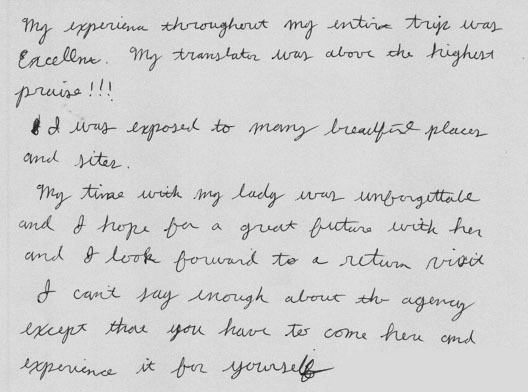 My experience throughout my entire trip was
Excellent. My translator was above the highest
praise!!!
I was exposed to many places
and sites.
My time with my lady was unforgettable
and I hope for a great future with her
and I look forward to a return visit
I can't say enough about the agency
except that you have to come here and
experience it for yourself